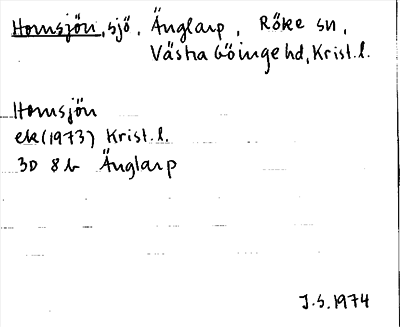 Hornsjön, sjö, Änglarp, Röke sn,
Västra Göinge hd, Krist. l.
Hornsjön
ek (1973) Krist. l.
3D 8b Änglarp
J.S. 1974